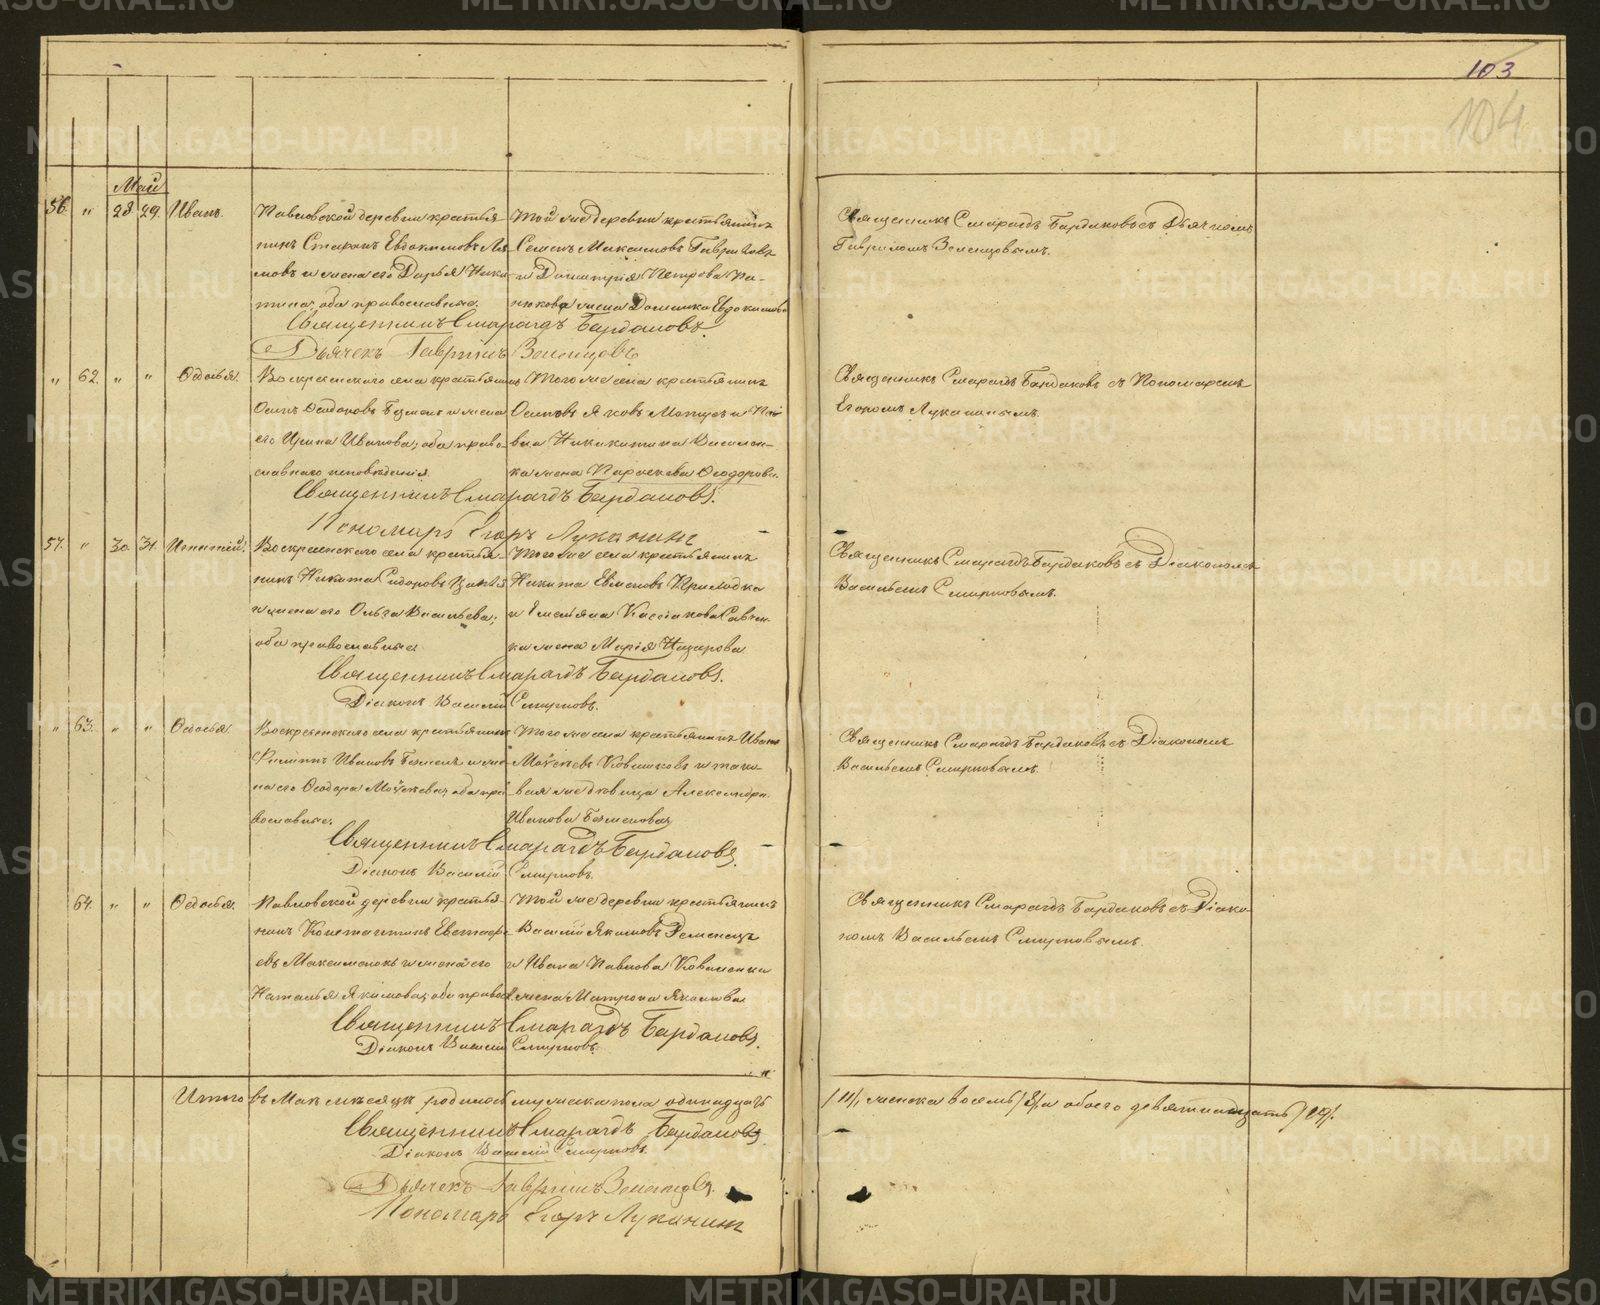 103
104
Май
56. " 28 29. Иванъ.
Павловской деревни крестья-
нинъ Старонъ Евдокимовъ
мовъ и жена его Дарья Ники-
тина, оба православные.
Той же деревни крестьянинъ
Семенъ Максимовъ Гавриловъ
и Димитрія Петрова
жена Домника Евдокимова
Священникъ Смарагдъ Бардаковъ съ Дьячкомъ
Гавриломъ Зеленцовымъ.
Священникъ Смарагдъ Бардаковъ.
Дьячекъ Гавріилъ Зеленцовъ
" 62. " " Федосья.
Воскресенскаго села крестьянинъ
Осипъ и жена
его Ирина Иванова, оба право-
славнаго исповѣданія.
Того же села крестьянинъ
Осиповъ Яковъ и
Василен-
ка жена Параскева Ѳеодорова.
Священникъ Смарагдъ Бардаковъ съ Пономаремъ
Егоромъ Луканинымъ.
Священникъ Смарагдъ Бардаковъ.
Пономарь Егоръ Луканинъ
57. " 30. 31. Игнатій.
Воскресенскаго села крестья-
нинъ Никита Сидоровъ
и жена его Ольга Васильева,
оба православные.
Того же села крестьянинъ
Никита Евменовъ Приходка
и Емельяна Кассіанова Савен-
ка жена Марія Назарова.
Священникъ Смарагдъ Бардаковъ съ Діакономъ
Васильемъ Смирновымъ.
Священникъ Смарагдъ Бардаковъ.
Діаконъ Василій Смирновъ.
" 63. " " Федосья.
Воскресенскаго села крестьянинъ
Филипъ Ивановъ и же-
на его Ѳеодора Моѵсеева, оба пра-
вославные.
Того же села крестьянинъ Иванъ
Моѵсеевъ Ковшиковъ и тако-
вая же дѣвица Александра
Иванова
Священникъ Смарагдъ Бардаковъ съ Діакономъ
Васильемъ Смирновымъ.
Священникъ Смарагдъ Бардаковъ.
Діаконъ Василій Смирновъ.
64. " " Федосья.
Павловской деревни крестья-
нинъ Константинъ
евъ и жена его
Наталья Якимова, оба правосл.
Той же деревни крестьянинъ
Василій Якимовъ Деменецъ
и Ивана Павлова Коваленки
жена Матрона Яковлева
Священникъ Смарагдъ Бардаковъ съ Діако-
номъ Васильемъ Смирновымъ.
Священникъ Смарагдъ Бардаковъ.
Діаконъ Василій Смирновъ.
Итого въ Маѣ мѣсяцѣ родилось мужеска пола одинадцать /11/, женска восемь /8/, а обоего девятнадцать /19/.
Священникъ Смарагдъ Бардаковъ.
Діаконъ Василій Смирновъ.
Дьячекъ Гавріилъ Зеленцовъ.
Пономарь Егоръ Луканинъ
METRIKI.GASO-URAL.RU